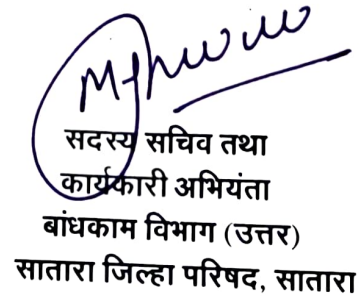 सदस्य सचिव तथा
कार्यकारी अभियंता
बांधकाम विभाग (उत्तर)
सातारा जिल्हा परिषद, सातारा